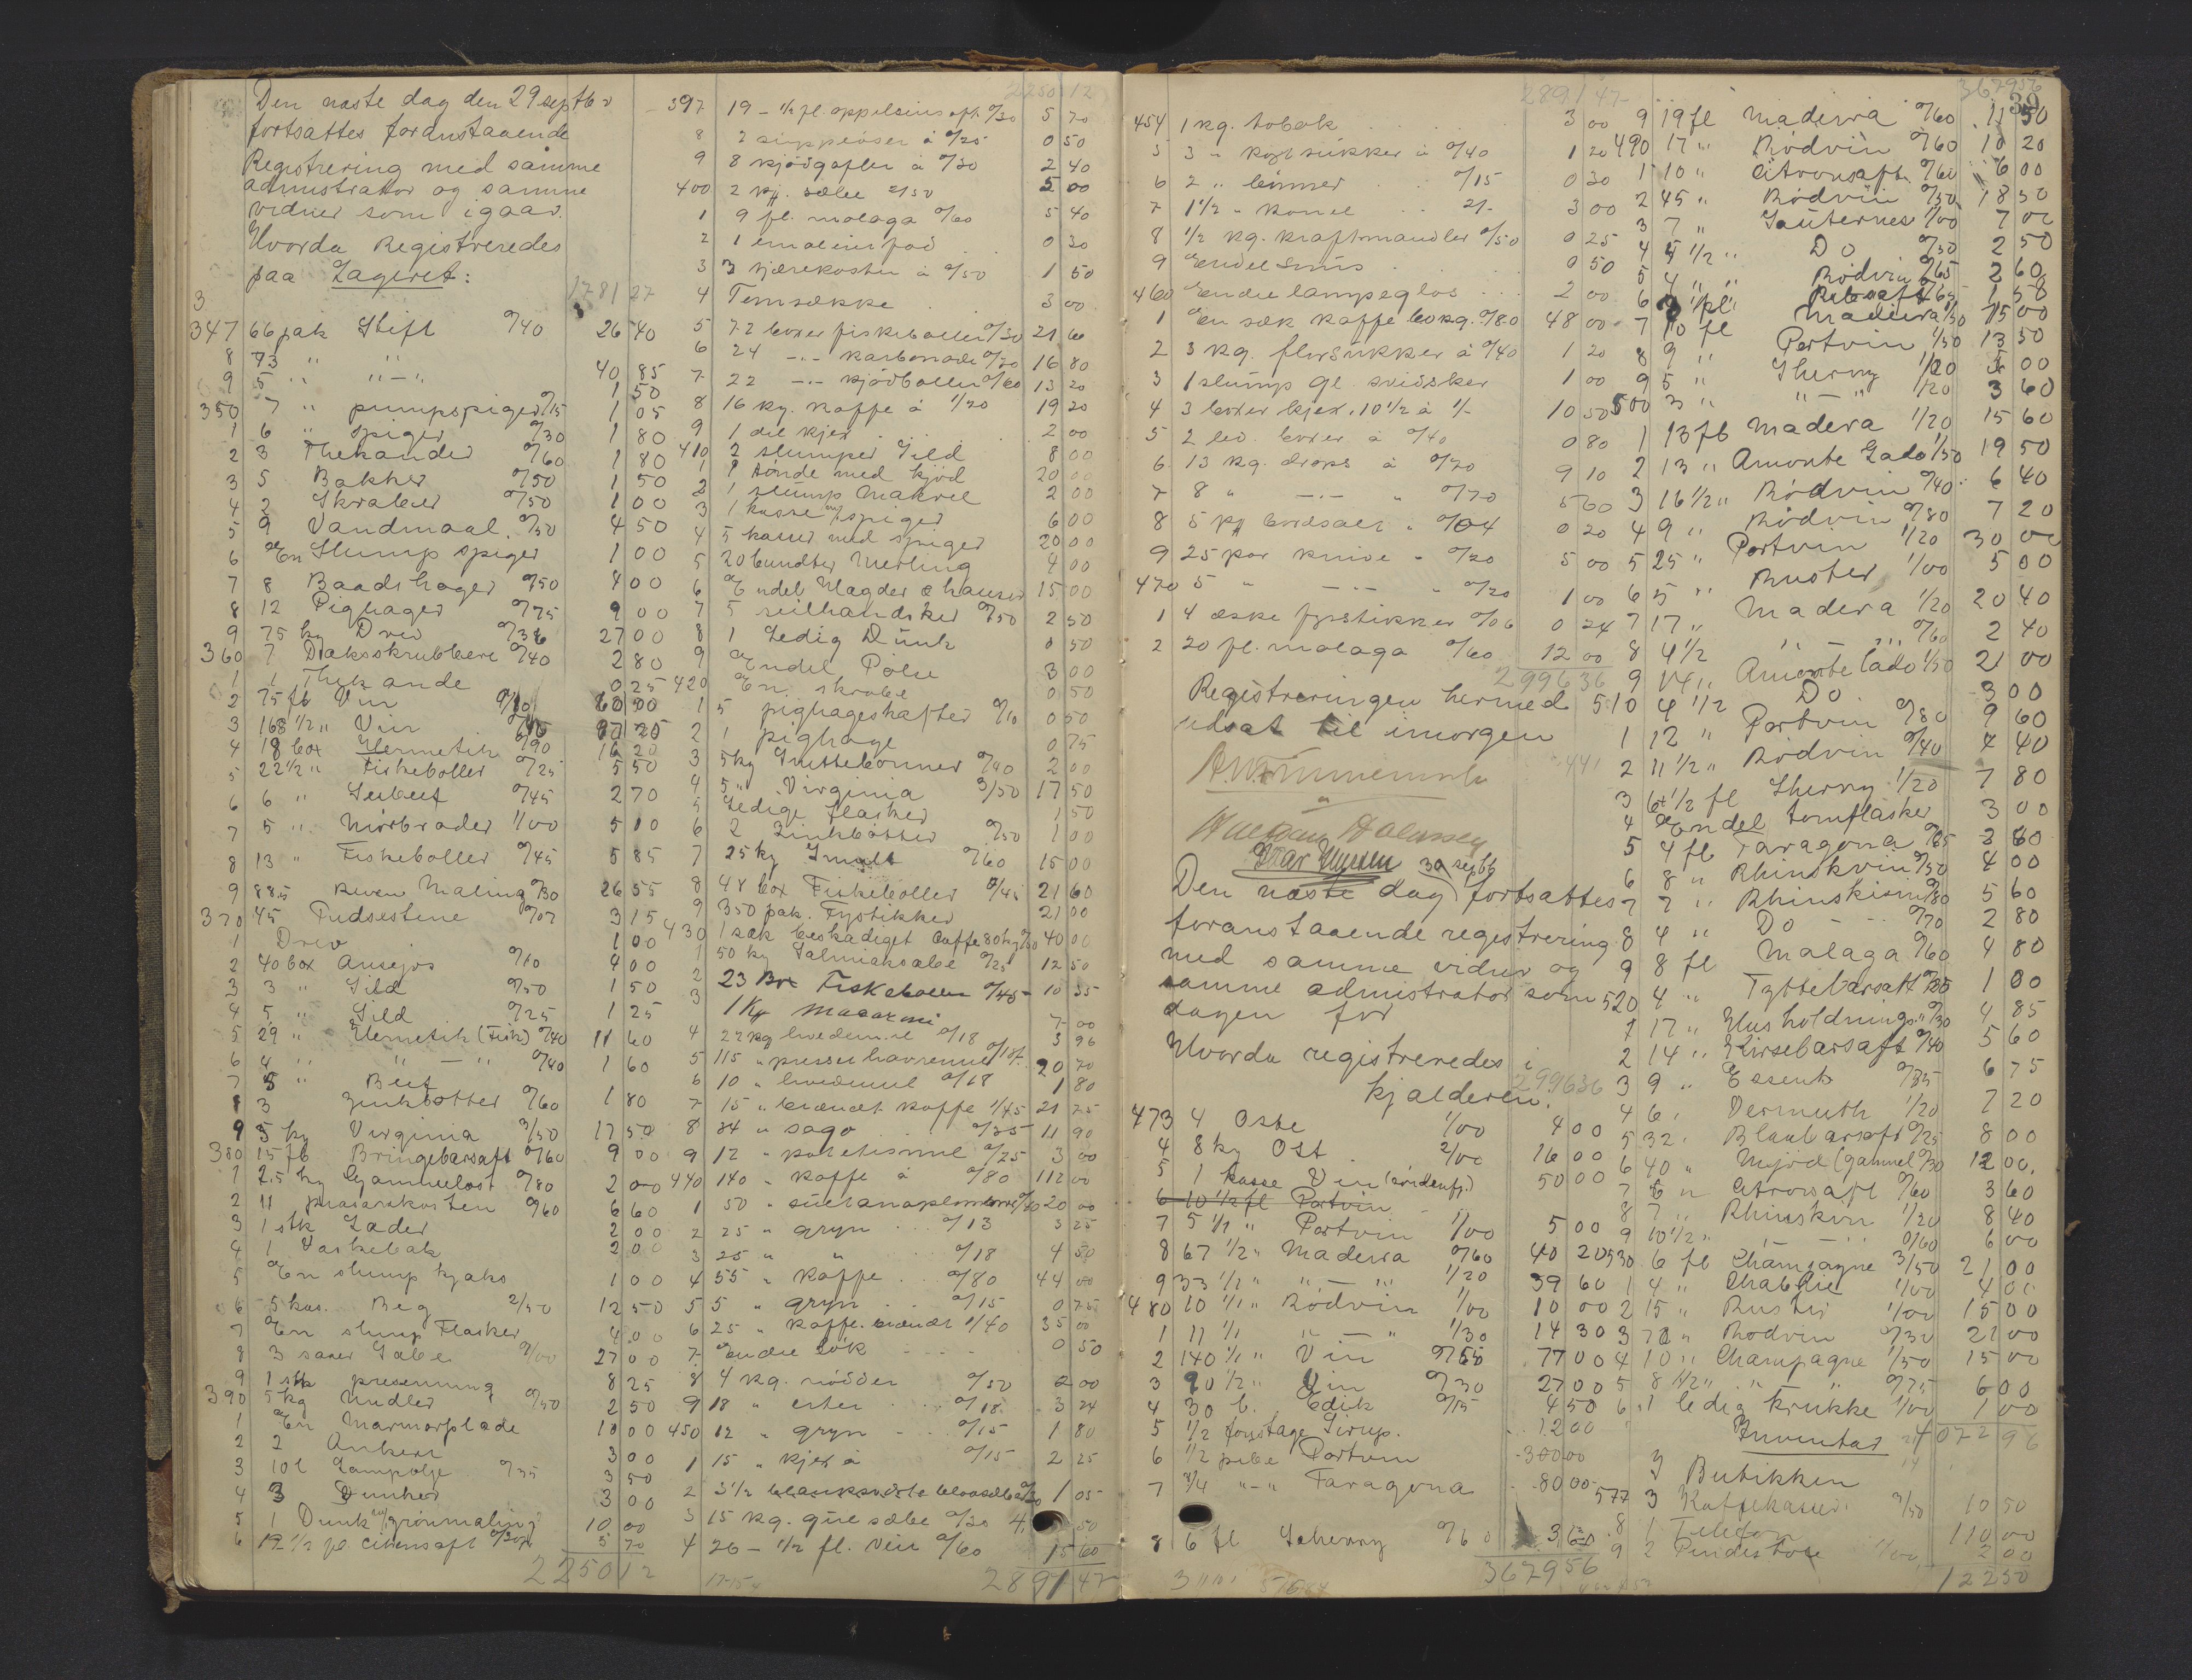 Den næste dag den 29 septbr
fortsattes foranstaaende
Registrering med samme
admistrator og samme
vidner som igaar.
Hvorda Registreredes
paa Lageret:
1781 27
347 66 pak Stift 0/40 26 40
8 73 " " 40 85
9 5 " " — " 1 50
350 7 " pumpspiger 0/15 1 05
1 6 " Spiger 0/30 1 80
2 3 Thekander 0/60 1 80
3 5 Bakker 0/50 1 50
4 2 Skraber 0/50 1 00
5 9 Vandmaal 0/50 4 50
6 En Slump Spiger 1 00
7 8 Baadshager 0/50 4 00
8 12 Pighager 0/75 9 00
9 75 kg Drev 0/36 27 00
360 7 Dæksskrubbere 0/40 2 80
1 1 Thekande 0 25
2 75 fl Vin 0/80 60 00
3 168 1/2 " Vin
4 18 box Hermetik 0/90 16 20
5 22 1/2 " Fiskeboller 0/25 5 50
6 6 " 0/45 2 70
7 5 " Mörbrader 1/00 5 10
8 13 " Fiskeboller 0/45 5 85
9 88.5 Reven Maling 0/30 26 55
370 45 Pudsestene 0/07 3 15
1 Drev 1 00
2 40 box Ansejos 0/10 4 00
3 3 " Sild 0/50 1 50
4 5 " Sild 0/25 1 25
5 29 " Hermetik (Fisk) 0/40 11 60
6 4 " " — " 0/40 1 60
7 5 " Beef
8 3 Zinkbøtter 0/60 1 80
9 5 kg Virginia 3/50 17 50
380 15 fl Bringebærsaft 0/60 9 00
1 2.5 kg Gammelost 0/80 2 00
2 11 0/60 6 60
3 1 stk Lader 2 00
4 1 Vaskebak 2 00
5 En slump kjæks 1 00
6 5 kas. Beg 2/50 12 50
7 En slump Flasker 4 00
8 3 Sæbe 9/00 27 00
9 1 stk presenning 8 25
390 5 kg Nudler 0/50 2 50
1 En Marmorplade 10 00
2 2 Ankere 3 00
3 10 l Lampolje 0/35 3 50
4 3 Dunker 3 00
5 1 Dunk m/ grönmaling 10 00
6 19 1/2 fl. Citronsaft 0/30 5 70
2250 12
2250 12
397 19 - 1/2 fl. appelsinsaft. 0/30 5 70
8 2 suppeöser á 0/25 0 50
9 8 kjödgafler á 0/30 2 40
400 2 kg. sæbe 2/50 5 00
1 9 fl. malaga 0/60 5 40
2 1 0 30
3 3 tjærekoster á 0/50 1 50
4 Tomsække 3 00
5 72 boxer fiskeboller 0/30 21 60
6 24 -..- karbonade 0/70 16 80
7 22 -..- kjödboller 0/60 13 20
8 16 kg. kaffe á 1/20 19 20
9 1 del kjex 2 00
410 2 slumper Sild 8 00
1 1 tönde med kjöd 20 00
2 1 slump Makrel 2 00
3 1 kasse m/ spiger 6 00
4 5 kasser med spiger 20 00
5 20 bundter Merling 4 00
6 Endel Magder & hauser 15 00
7 5 seilhandsker 0/50 2 50
8 1 Ledig Dunk 0 50
9 Endel Pöler 3 00
420 En skrabe 0 50
1 5 pighageskafter 0/10 0 50
2 1 pighage 0 75
3 5 kg Snittebönner 0/40 2 00
4 5 " Virginia 3/50 17 50
5 Ledige flasker 1 50
6 2 Zinkbötter 0/50 1 00
7 25 kg Smult 0/60 15 00
8 48 box Fiskeboller 0/45 21 60
9 350 pak. Fystikker 21 00
430 1 sæk beskadiget Caffe 80 kg 0/50 40 00
1 50 kg Salmiaksæbe 0/25 12 50
2 23 Box Fiskeboller 0/45 10 35
3 1 Kg Macaroni 7 00
4 22 kg hvedemel 0/18 3 96
5 115 " presset havremel 0/18 20 70
6 10 " hvedemel 0/18 1 80
7 15 " brændt kaffe 1/45 21 75
8 34 " sago 0/35 11 90
9 12 " potetismel 0/25 3 00
440 140 " kaffe á 0/80 112 00
1 50 " 0/40 20 00
2 25 " gryn 0/13 3 25
3 25 " " 0/18 4 50
4 55 " kaffe 0/80 44 00
5 5 " gryn 0/15 0 75
6 25 " kaffe. brændt 1/40 35 00
7 Endel lök 0 50
8 4 kg. nödder 0/50 2 00
9 18 " erter 0/18 3 24
450 12 " gryn 0/15 1 80
1 15 " kjex á 0/15 2 25
2 3 1/2 1 05
3 15 kg. grøn sæbe 0/30 50
4 26 - 1/2 fl. Vin 0/60 15 60
2891 47
2891 47
454 1 kg. tobak 3 00
5 3 " sukker á 0/40 1 20
6 2 " bönner 0/15 0 30
7 1 1/2 " kanel 2/- 3 00
8 1/2 kg. kraftmandler 0/50 0 25
9 Endel snus 0 50
460 Endel lampeglas 2 00
1 En sæk kaffe 60 kg. 0/80 48 00
2 3 kg. florsukker á 0/40 1 20
3 1 slump gl. svidsker 1 00
4 3 boxer kjex. 10 1/2 á 1/- 10 50
5 2 led. boxer á 0/40 0 80
6 13 kg. drops á 0/70 9 10
7 8 " —.— " 0/70 5 60
8 5 0/04 0 20
9 25 par knive " 0/20 5 00
470 5 " —.— " 0/20 1 00
1 4 æske fyrstikker 0/06 0 24
2 20 fl. malaga 0/60 12 00
2996 36
Registreringen hermed
udsat til imorgen
30 septb
Den næste dag fortsattes
foranstaaende registrering
med samme vidner og
samme admistrator som
dagen for
Hvorda registreredes i
kjælderen.
2996 36
473 4 Oste 1/00 4 00
4 8 kg Ost 2/00 16 00
5 1 kasse Vin 50 00
6 10 1/2 fl Portvin
7 5 1/1 " Portvin 1/00 5 00
8 67 1/2 " Madeira 0/60 40 20
9 33 1/1 " " — " 1/20 39 60
480 10 1/1 " Rödvin 1/00 10 00
1 11 1/1 " — " 1/30 14 30
2 140 1/1 " Vin 0/55 77 00
3 90 1/2 " Vin 0/30 27 00
4 30 l. Edik 0/15 4 50
5 1/2 fonstage Sirup. 12 00
6 1/2 pibe Portvin 300 00
7 3/4 " - " Taragona 80 00
8 6 fl Scherry 0/60 3 60
3679 56
3679 56
39
9 19 fl Madeira 0/60 11 50
490 17 " Rödvin 0/60 10 20
1 10 " Citronsaft 0/60 6 00
2 45 " Rödvin 0/50 18 50
3 7 " Sauternes 1/00 7 00
4 5 1/2 " Do 0/50 2 50
5 4 " Rödvin 0/65 2 60
6 Ribssaft 1 58
7 10 fl Madeira 1/50 15 00
8 9 " Portvin 1/50 13 50
9 5 " Sherry 1/20 5 00
500 3 " " — " 1/20 3 60
1 13 fl Madera 1/20 15 60
2 13 " Amonte Lado 1/50 19 50
3 16 1/2 " Rödvin 0/40 6 40
4 9 " Rödvin 0/80 7 20
5 25 " Portvin 1/20 30 00
6 5 " Ruster 1/00 5 00
7 17 " Madera 1/20 20 40
8 4 1/2 " — " 0/60 2 40
9 14 " Amonte lado 1/50 21 00
510 4 1/2 Do 3 00
1 12 " Portvin 0/80 9 60
2 11 1/2 " Rödvin 0/40 4 40
3 6+1/2 fl Sherry 1/20 7 80
4 Endel tomflasker 3 00
5 4 fl Taragona 0/65 2 60
6 8 " Rhinskvin 0/50 4 00
7 7 " Rhinskvin 0/80 5 60
8 4 " Do 0/70 2 80
9 8 fl Malaga 0/60 4 80
520 4 " Tyttebærsaft 1 00
1 17 " Husholdnings " 0/30 4 85
2 14 " Kirsebærsaft 0/40 5 60
3 9 " Essents 0/75 6 75
4 6 " Vermuth 1/20 7 20
5 32 " Blaabærsaft 0/25 8 00
6 40 " Mjöd (gammel 0/30 12 00
7 6 " Citronsaft 0/60 3 60
8 7 " Rhinskvin 1/20 8 40
9 10 1/2 " — 0/60 6 00
530 6 fl Champagne 3/50 21 00
1 4 " Chablie 1/00 4 00
2 15 " Ruster 1/00 15 00
3 70 " Rodvin 0/30 21 00
4 10 " Champagne 1/50 15 00
5 8 1/2 " " " 0/75 6 00
6 1 ledig krukke 1/00 1 00
4072 96
Inventar
I Butikken
577 3 Kaffekasser 3/50 10 50
8 1 Telefon 110 00
9 2 1/00 2 00
122 50